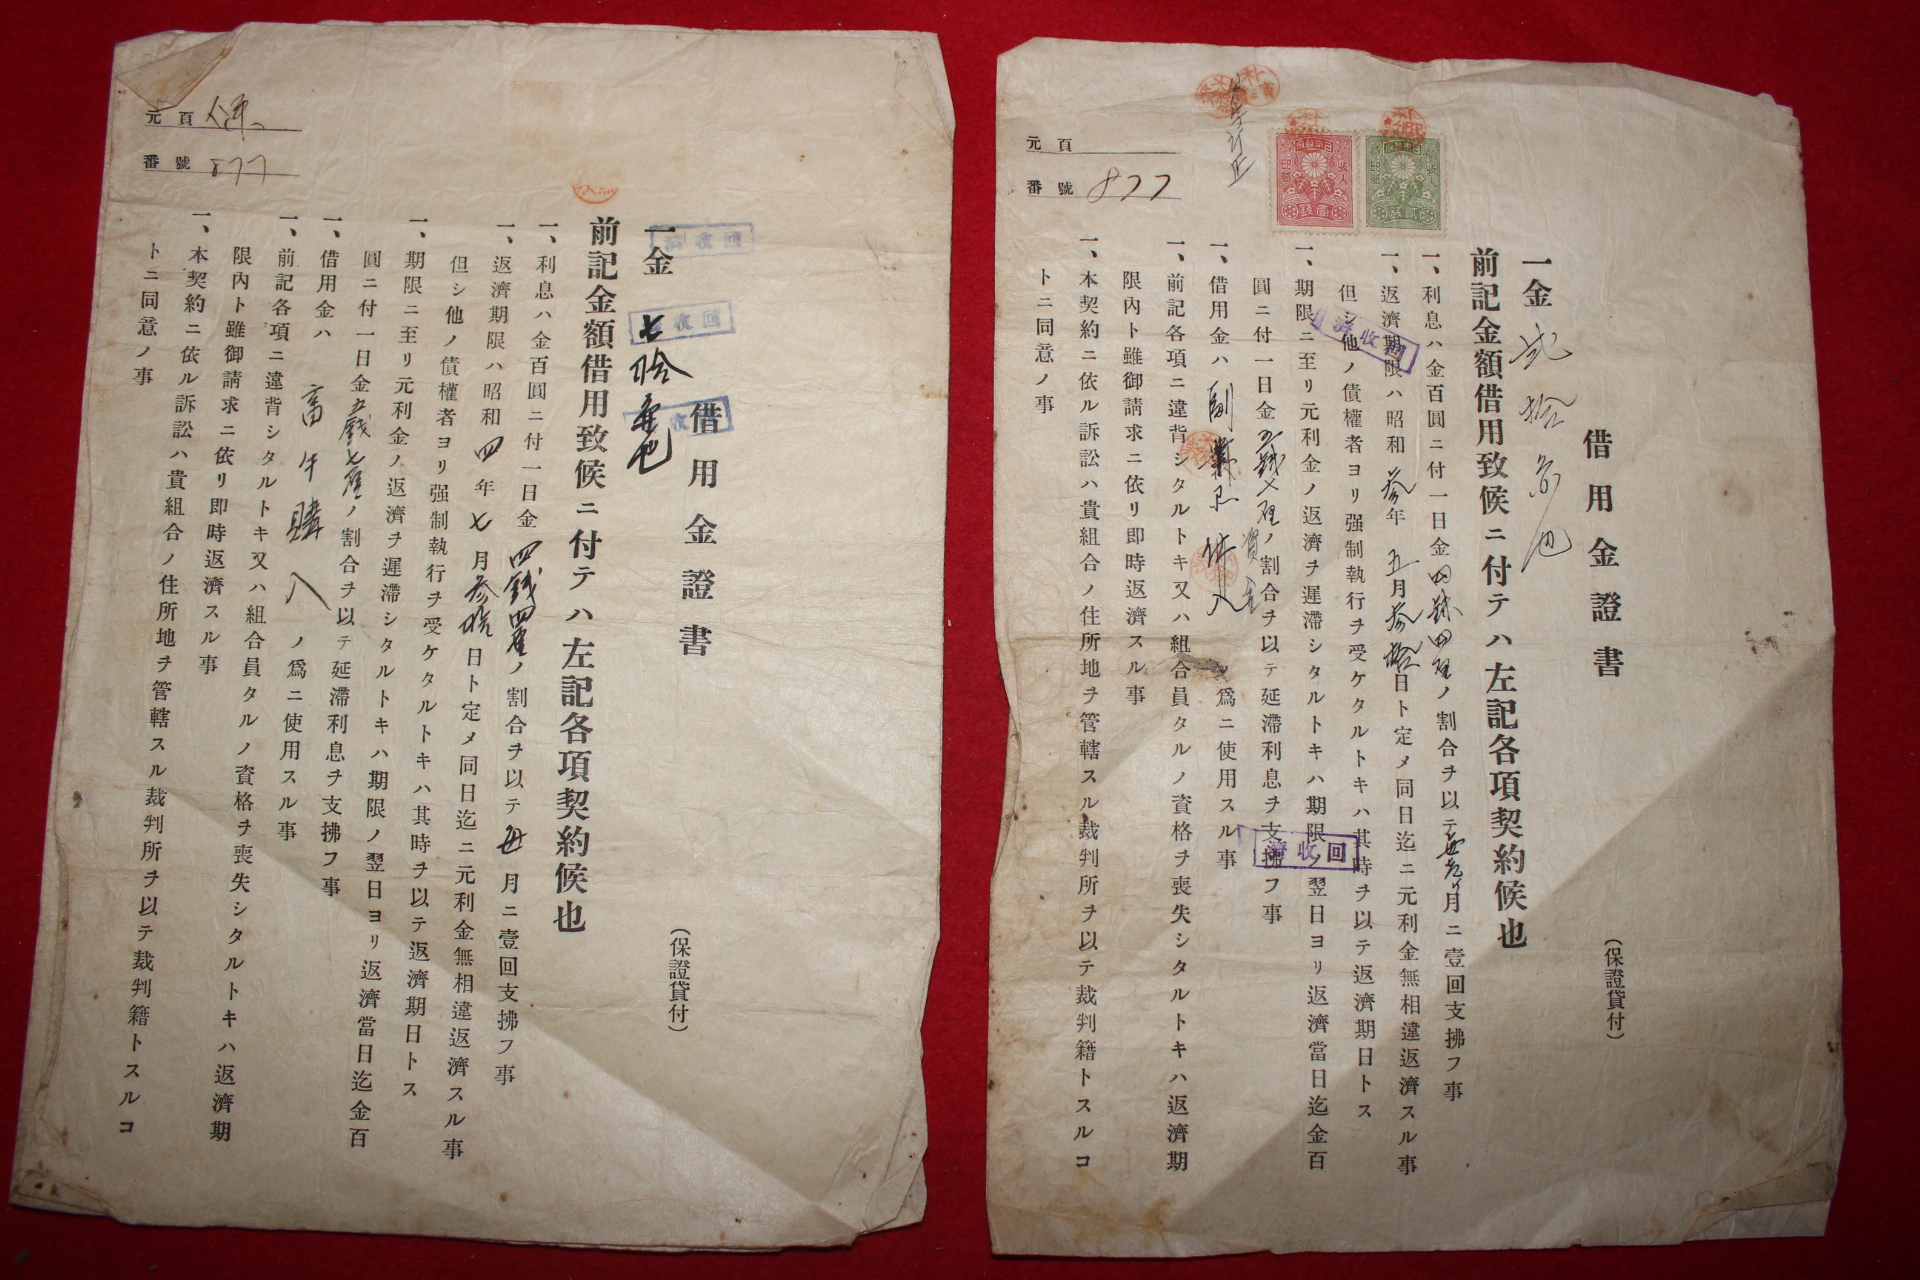 借用金證書
(保證貸付)
一金 貳拾円也
前記金額借用致候ニ付テハ左記各項契約候也
一、利息ハ金百圓ニ付一日金四銭四厘ノ割合ヲ以テ毎月ニ壹回支拂フ事
一、返濟期限ハ昭和参年五月参拾日ト定メ同日迄ニ元利金無相違返濟スル事
但シ他ノ債權者ヨリ强制執行ヲ受ケタルトキハ其時ヲ以テ返濟期日トス
一、期限ニ至リ元利金ノ返濟ヲ遲滯シタルトキハ期限ノ翌日ヨリ返濟當日迄金百
圓ニ付一日金五銭七厘ノ割合ヲ以テ延滯利息ヲ支拂フ事
一、借用金ハ副業 資金 爲ニ使用スル事
一、前記各項ニ違背シタルトキ又ハ組合員タルノ資格ヲ喪失シタルトキハ返濟期
限內ト雖御請求ニ依リ卽時返濟スル事
一、本契約ニ依ル訴訟ハ貴組合ノ住所地ヲ管轄スル裁判所ヲ以テ裁判籍トスルコ
トニ同意ノ事
元頁
番號 877
回收濟
回收濟
借用金證書
(保證貸付)
一金 七拾円也
前記金額借用致候ニ付テハ左記各項契約候也
一、利息ハ金百圓ニ付一日金四銭四厘ノ割合ヲ以テ毎月ニ壹回支拂フ事
一、返濟期限ハ昭和四年七月参拾日ト定メ同日迄ニ元利金無相違返濟スル事
但シ他ノ債權者ヨリ强制執行ヲ受ケタルトキハ其時ヲ以テ返濟期日トス
一、期限ニ至リ元利金ノ返濟ヲ遲滯シタルトキハ期限ノ翌日ヨリ返濟當日迄金百
圓ニ付一日金五銭七厘ノ割合ヲ以テ延滯利息ヲ支拂フ事
一、借用金ハ 畜牛購入 ノ爲ニ使用スル事
一、前記各項ニ違背シタルトキ又ハ組合員タルノ資格ヲ喪失シタルトキハ返濟期
限內ト雖御請求ニ依リ卽時返濟スル事
一、本契約ニ依ル訴訟ハ貴組合ノ住所地ヲ管轄スル裁判所ヲ以テ裁判籍トスルコ
トニ同意ノ事
元頁
番號 877
回收濟
回收濟
回收